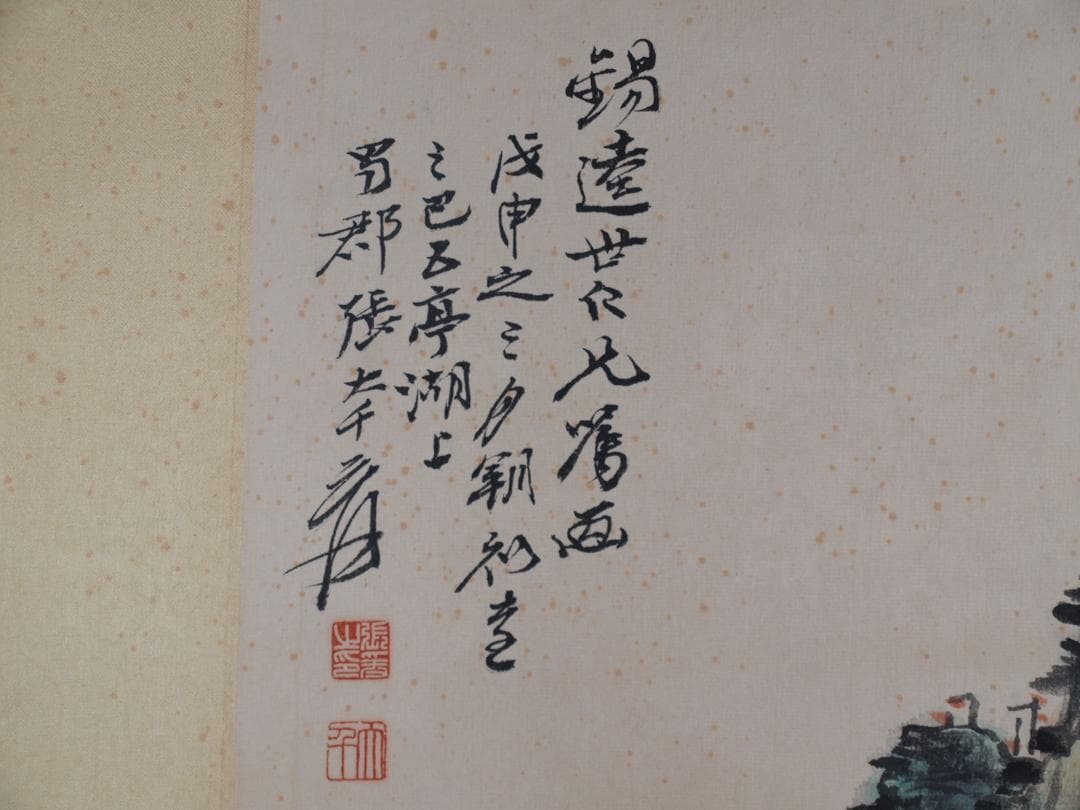 錫逵世仁兄嘱画
戊申之三月朝初
三巴五亭湖上
蜀郡張大千爰
張爰之印
大千